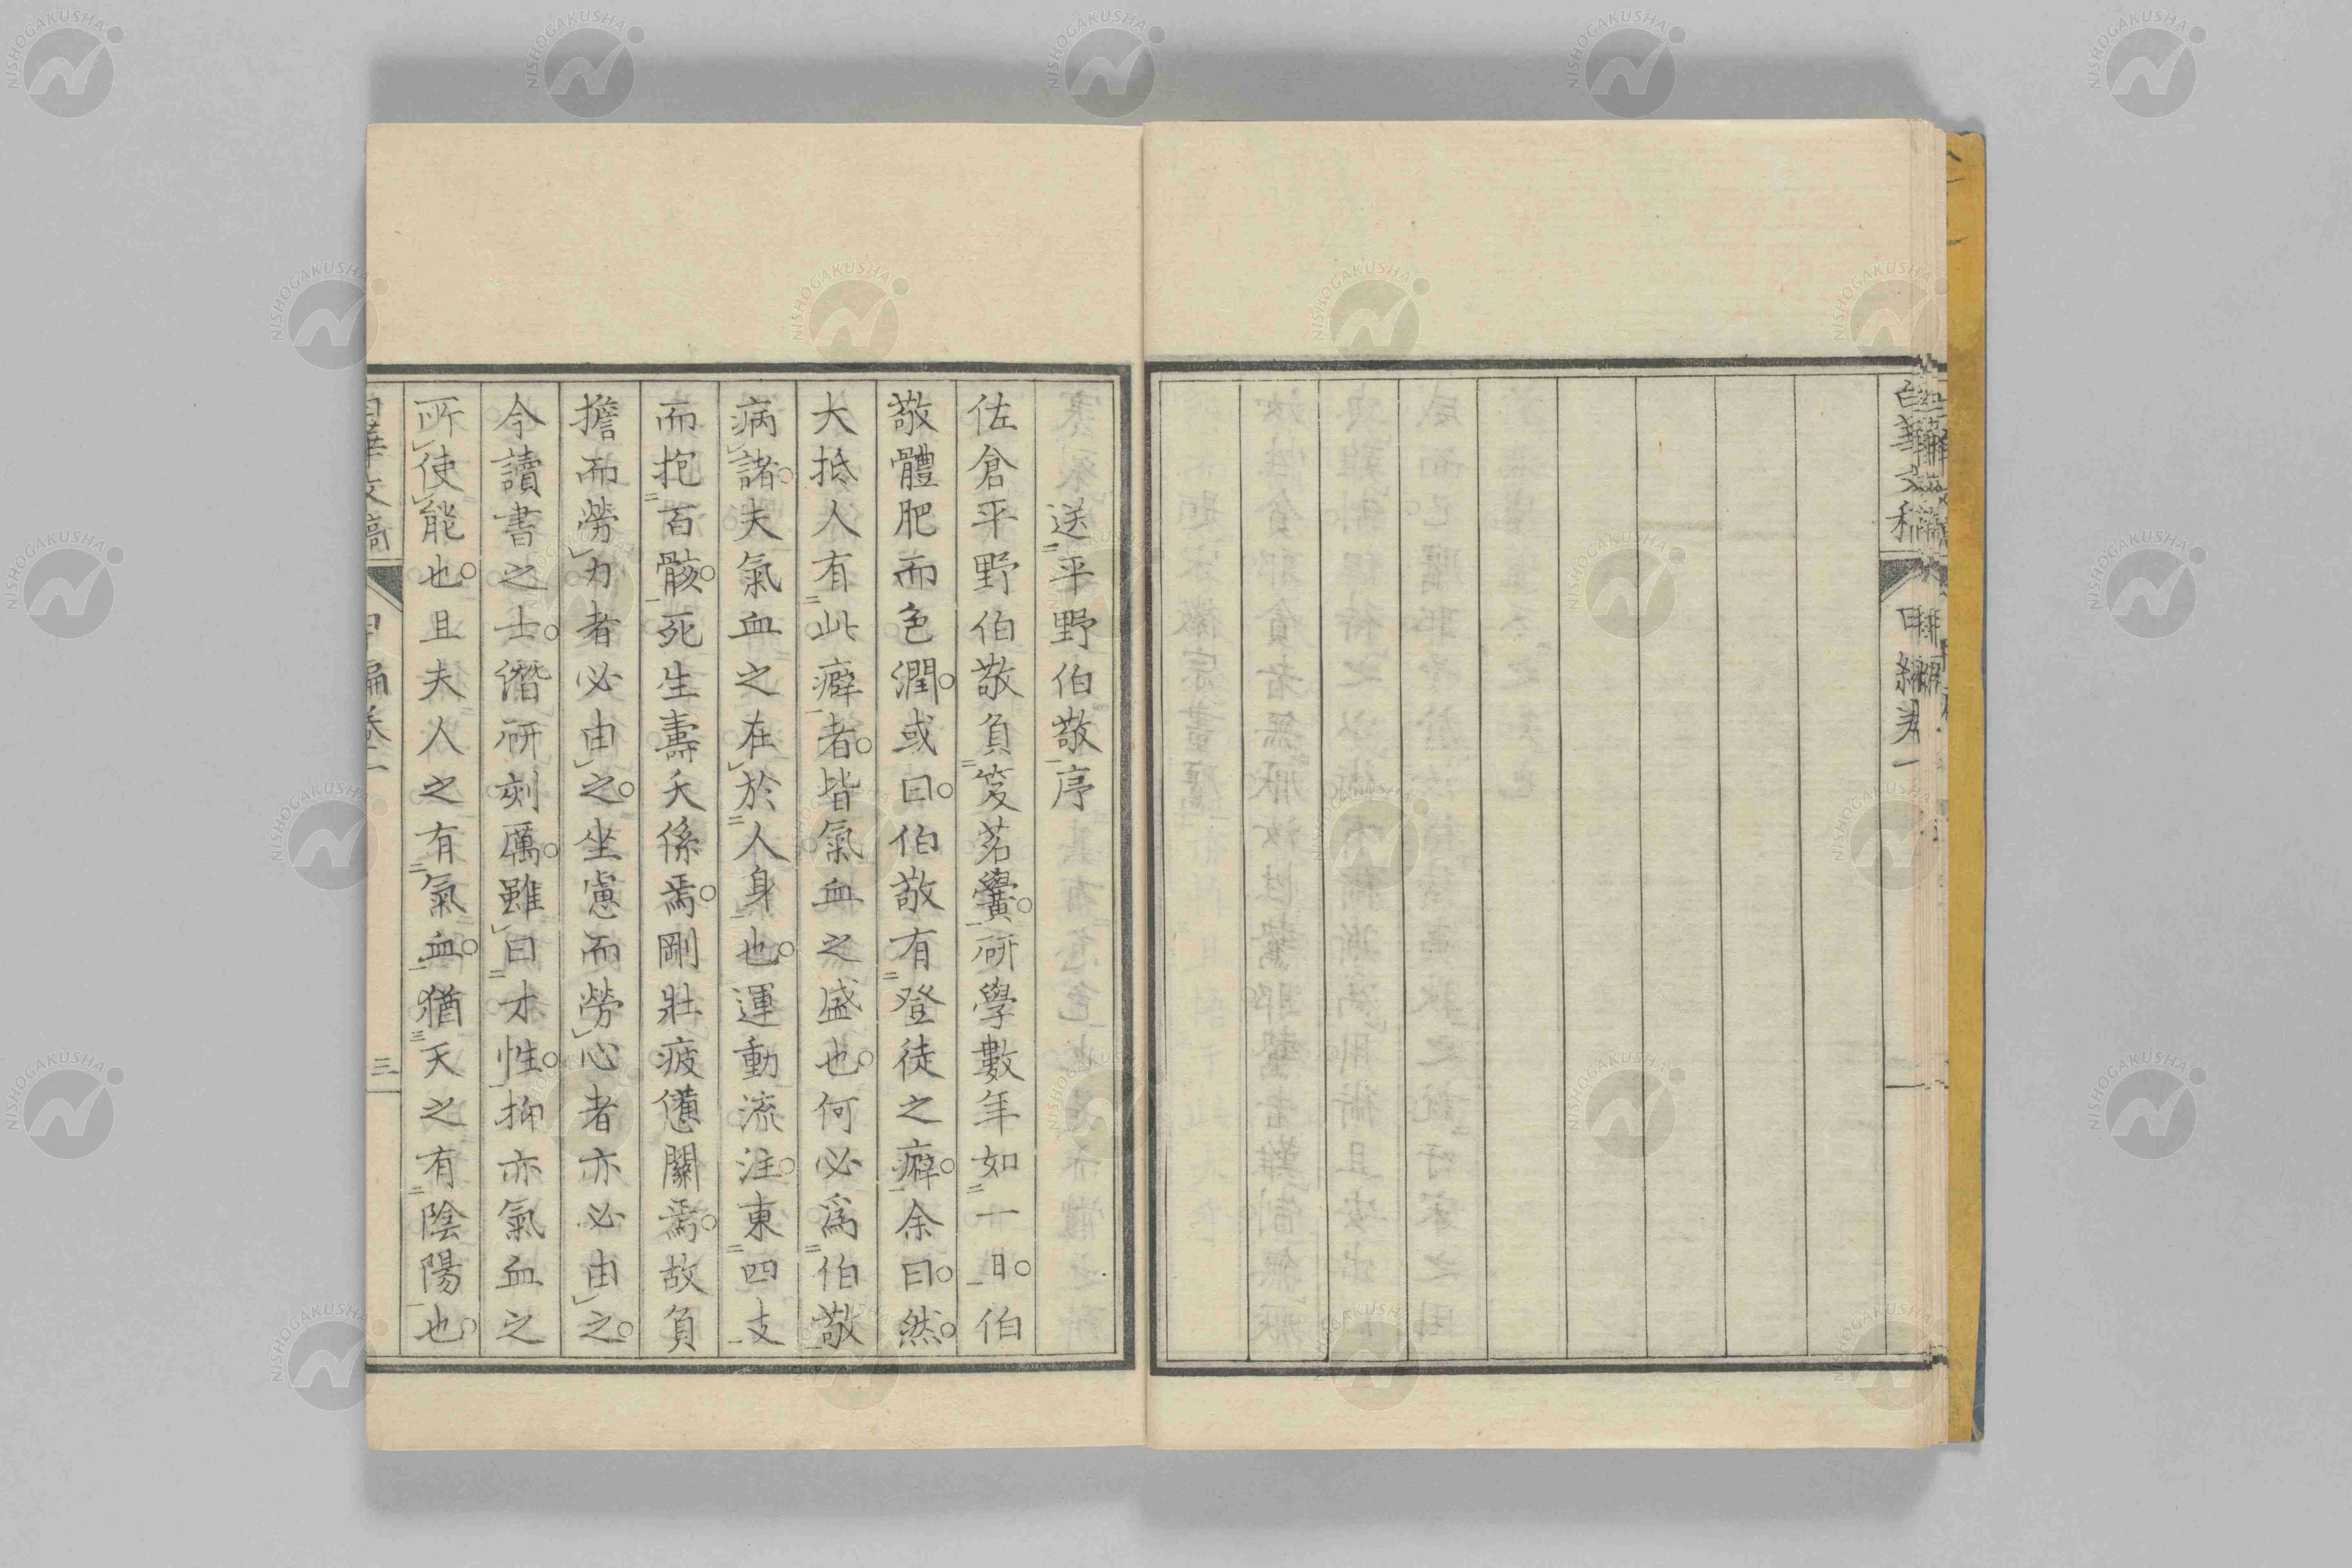 送平野伯敬序
佐倉平野伯敬負笈茗黌。研學數年如一日。伯
敬體肥而色潤。或曰。伯敬有登徒之癖。余曰。然。
大抵人有此癖者。皆氣血之盛也。何必爲伯敬
病諸。夫氣血之在於人身也。運動流注。東四支
而抱百骸。死生壽夭係焉。剛壯疲憊關焉。故負
擔而勞力者必由之。坐慮而勞心者亦必由之。
今讀書之士。僭研刻厲。雖曰才性。抑亦氣血之
所使能也。且夫人之有氣血。猶天之有陰陽也。
三
NISHOGAKUSHA